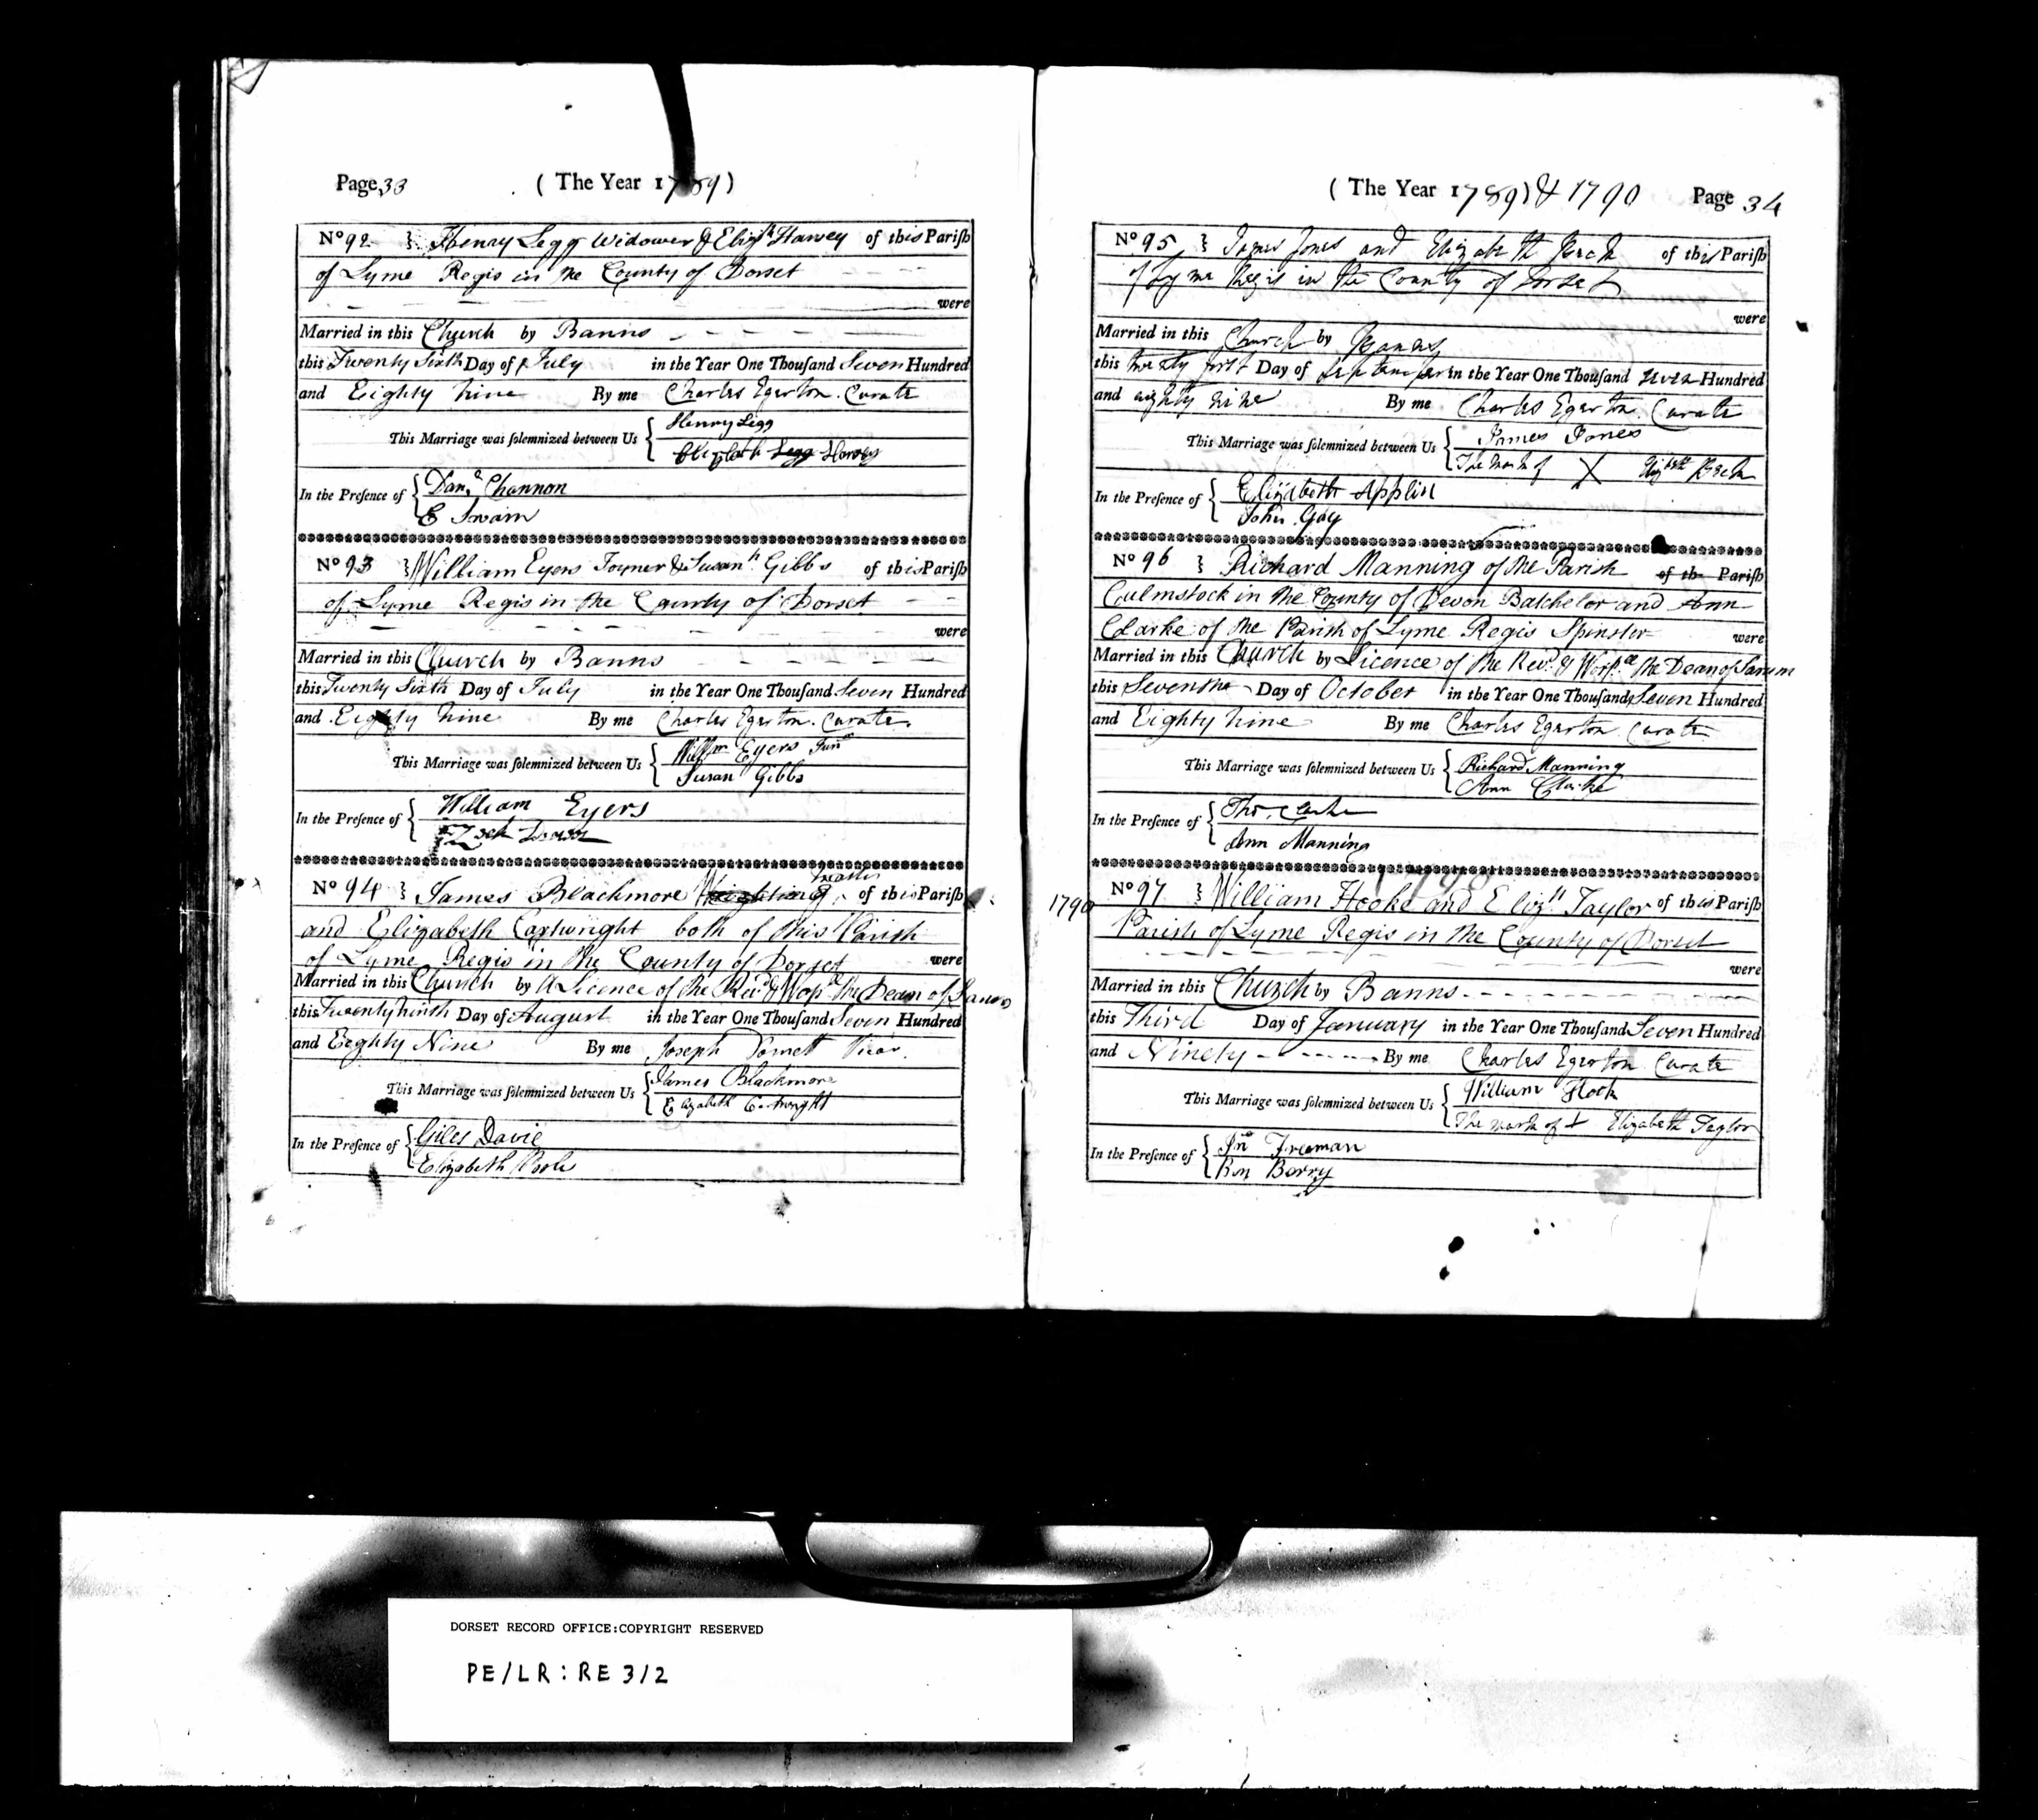 Page 33 ( The Year 1789 )
No 92 Henry Legg Widower & Elizth Harvey of this Parish
of Lyme Regis in the County of Dorset
were
Married in this Church by Banns
this Twenty Sixth Day of July in the Year One Thousand Seven Hundred
and Eighty Nine By me Charles Egerton. Curate
This Marriage was solemnized between Us Henry Legg
Elizabeth Legg Harvey
In the Presence of Danl Channon
E Swain
No 93 William Eyers Joyner & Susanh Gibbs of this Parish
of Lyme Regis in the County of Dorset
were
Married in this Church by Banns
this Twenty Sixth Day of July in the Year One Thousand Seven Hundred
and Eighty Nine By me Charles Egerton. Curate.
This Marriage was solemnized between Us Willm Eyers Junr
Susan Gibbs
In the Presence of William Eyers
No 94 James Blackmore of this Parish
and Elizabeth Cartwright both of this Parish
of Lyme Regis in the County of Dorset were
Married in this Church by A Licence of the Revd & Worpl the Dean of Sarum
this Twenty Ninth Day of August in the Year One Thousand Seven Hundred
and Eighty Nine By me Joseph Vicar.
This Marriage was solemnized between Us James Blackmore
Elizabeth Cartwright
In the Presence of Giles Davie
Elizabeth Poole
( The Year 1789) & 1790 Page 34
No 95 James Jones and Elizabeth of this Parish
of Lyme Regis in the County of Dorset
were
Married in this Church by Banns
this twenty first Day of September in the Year One Thousand Seven Hundred
and eighty nine By me Charles Egerton. Curate
This Marriage was solemnized between Us James Jones
The Mark of X Elizbth
In the Presence of Elizabeth Applin
John Gay
No 96 Richard Manning of the Parish of th Parish
Culmstock in the County of Devon Batchelor and Ann
Clarke of the Parish of Lyme Regis Spinster were
Married in this Church by Licence of the Revd & Worpll the Dean of Sarum
this Seventh Day of October in the Year One Thousand Seven Hundred
and Eighty Nine By me Charles Egerton Curate
This Marriage was solemnized between Us Richard Manning
Ann Clarke
In the Presence of Thos. Clarke
Ann Manning
1790
1790 No 97 William Hooke and Elizth Taylor of this Parish
Parish of Lyme Regis in the County of Dorset
were
Married in this Church by Banns
this Third Day of January in the Year One Thousand Seven Hundred
and Ninety By me Charles Egerton Curate
This Marriage was solemnized between Us William Hook
The mark of + Elizabeth Taylor
In the Presence of Jno Freeman
Berry
DORSET RECORD OFFICE:COPYRIGHT RESERVED
PE/LR:RE 3/2